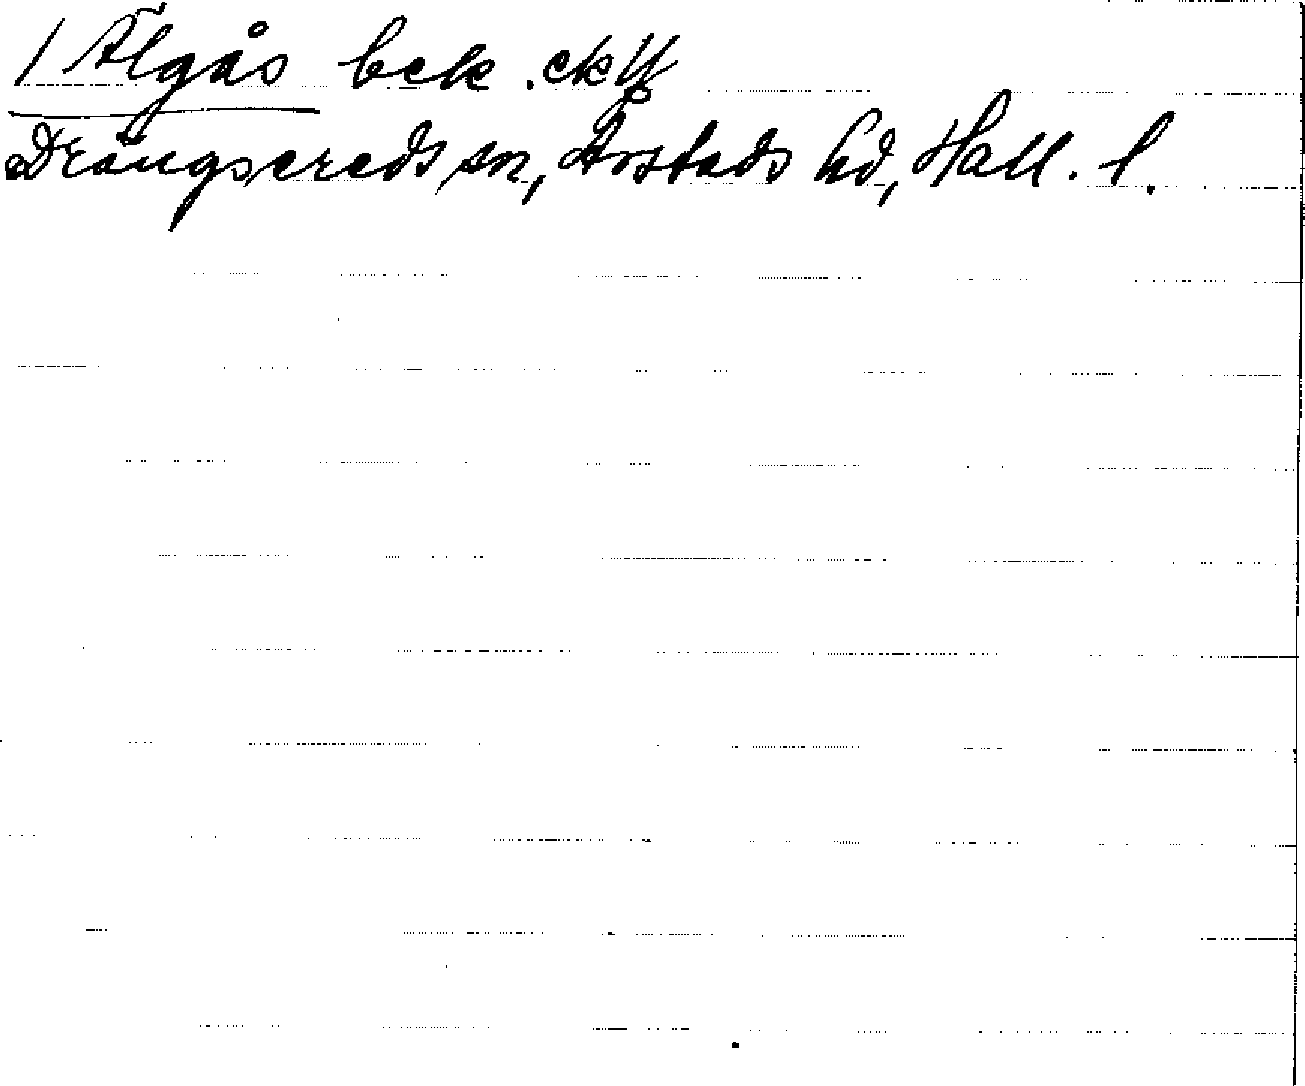 / Älgås bek. ekbl
Drängsereds sn, Årstads hd, Hall. l.